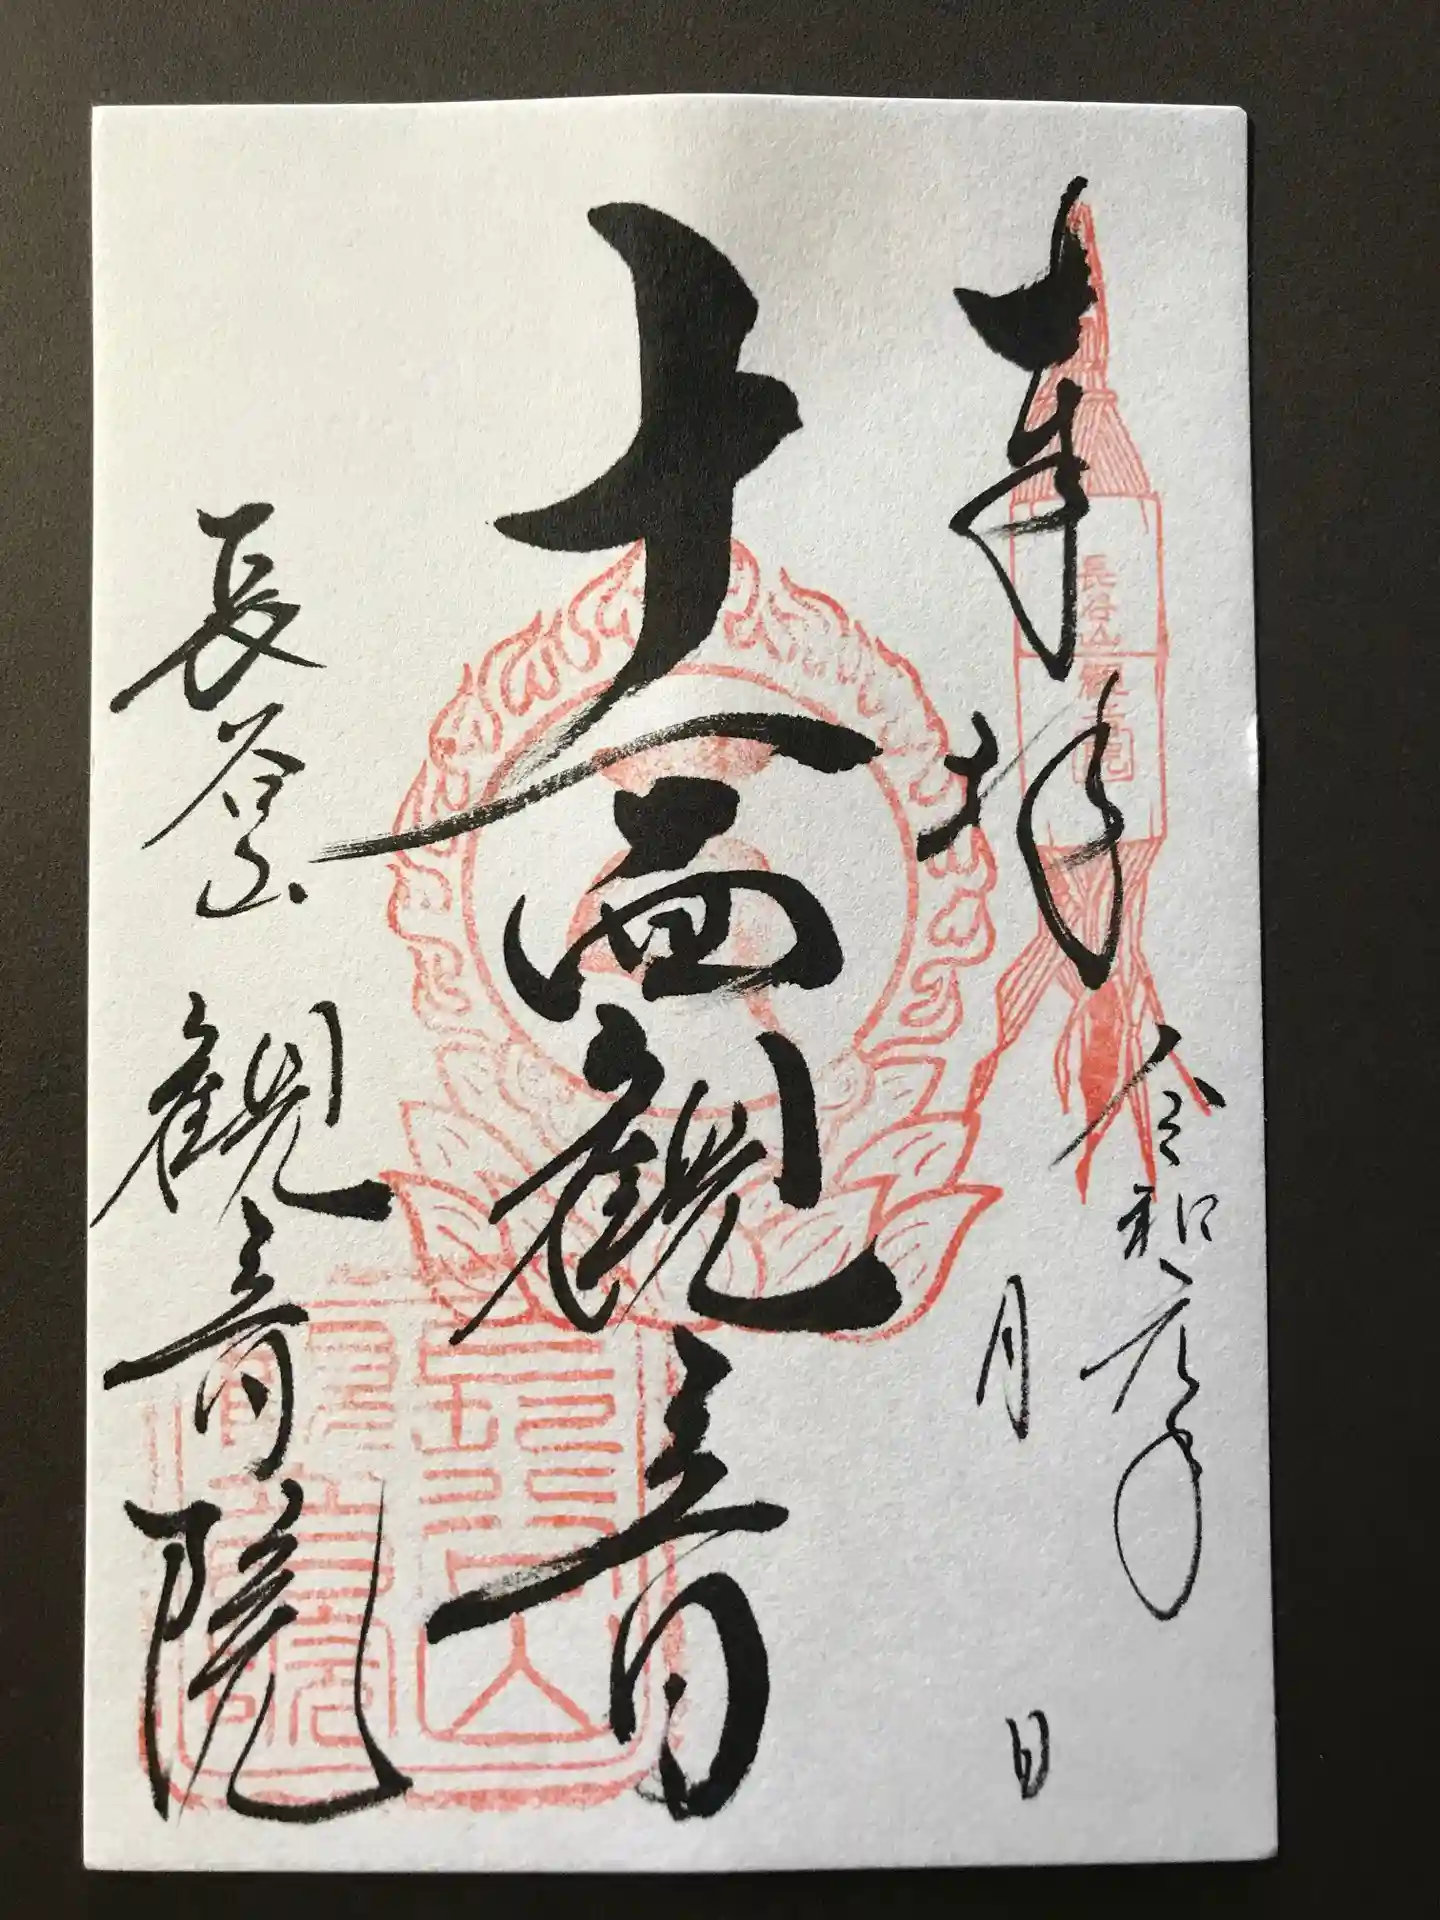 奉拝
長谷山
観音院
令和元年
月
日
十一面観音
長谷山
観音院
長谷山観音院